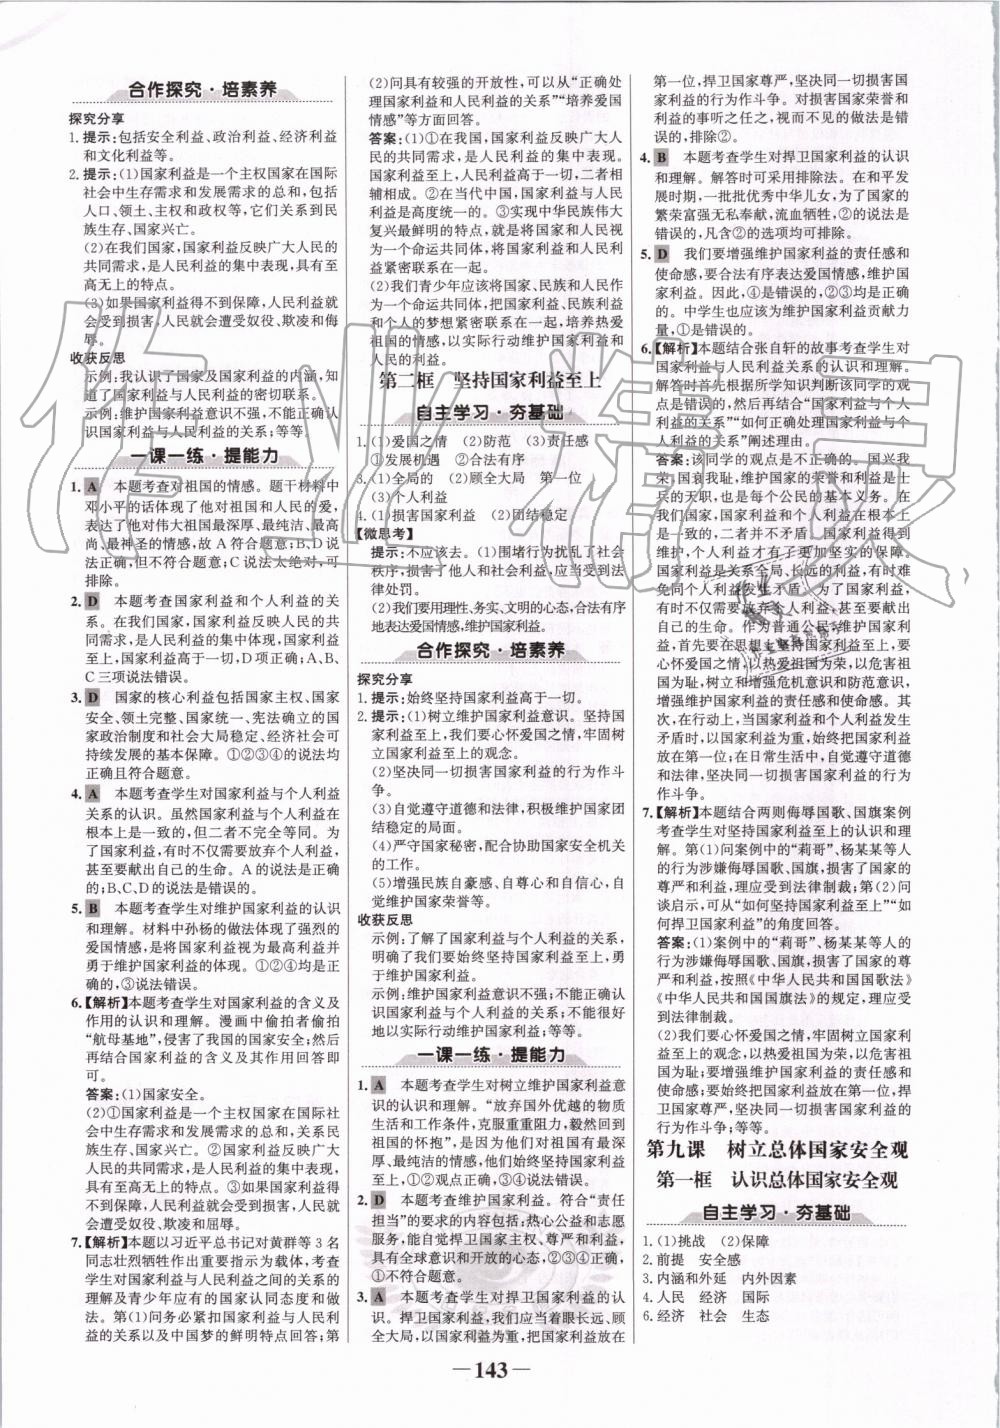 合作探究·培素养
探究分享
1. 提示:包括安全利益、政治利益、经济利益
和文化利益等。
2. 提示:(1)国家利益是一个主权国家在国际
社会中生存需求和发展需求的总和,包括
人口、领土、主权和政权等,它们关系到民
族生存、国家兴亡。
(2)在我们国家,国家利益反映广大人民的
共同需求,是人民利益的集中表现,具有至
高无上的特点。
(3)如果国家利益得不到保障,人民利益就
会受到损害,人民就会遭受奴役、欺凌和侮
辱。
收获反思
示例:我认识了国家及国家利益的内涵,知
道了国家利益与人民利益的密切联系。
示例:维护国家利益意识不强,不能正确认
识国家利益与人民利益的关系;等等。
一课一练·提能力
1. A 本题考查对祖国的情感。题干材料中
邓小平的话体现了他对祖国和人民的爱,
表达了他对伟大祖国最深厚、最纯洁、最高
尚、最神圣的情感,故 A 符合题意;B、D 说
法正确,但不符合题意;C 说法太绝对,可
排除。
2. D 本题考查国家利益和个人利益的关
系。在我们国家,国家利益反映人民的共
同需求,是人民利益的集中体现,国家利益
至上,与人民利益相统一,D 项正确;A、B、
C 三项说法错误。
3. D 国家的核心利益包括国家主权、国家
安全、领土完整、国家统一、宪法确立的国
家政治制度和社会大局稳定、经济社会可
持续发展的基本保障。①②③④的说法均
正确且符合题意。
4. A 本题考查学生对国家利益与个人利益
关系的认识。虽然国家利益与个人利益在
根本上是一致的,但二者不完全等同。为
了国家利益,有时不仅需要放弃个人利益,
甚至要献出自己的生命。A 的说法是正确
的;B、C、D 的说法是错误的。
5. B 本题考查学生对维护国家利益的认识
和理解。材料中孙杨的做法体现了强烈的
爱国情感,是将国家利益视为最高利益并
勇于维护国家利益的体现。①②④说法正
确的,③说法错误。
6.【解析】本题考查学生对国家利益的含义及
作用的认识和理解。漫画中偷拍者偷拍
“航母基地”,侵害了我国的国家安全;然后
再结合国家利益的含义及其作用回答即
可。
答案:(1)国家安全。
(2)①国家利益是一个主权国家在国际社
会中生存需求和发展需求的总和,关系到
民族生存、国家兴亡。②国家利益反映广
大人民的共同需求,是人民利益的集中表
现,具有至高无上的特点。③如果国家利益
得不到保障,人民利益就会受到损害,人民
就会遭受奴役、欺凌和屈辱。
7.【解析】本题以习近平总书记对黄群等 3 名
同志壮烈牺牲作出重要指示为载体,考查
学生对国家利益与人民利益之间的关系的
理解及青少年应有的国家认同态度和做
法。第(1)问务必紧扣国家利益与人民利
益的关系以及中国梦的鲜明特点回答;第
(2)问具有较强的开放性,可以从“正确处
理国家利益和人民利益的关系”“培养爱国
情感”等方面回答。
答案:(1)①在我国,国家利益反映广大人
民的共同需求,是人民利益的集中表现。
国家利益至上,人民利益高于一切,二者相
辅相成。②在当代中国,国家利益与人民
利益是高度统一的。③实现中华民族伟大
复兴最鲜明的特点,就是将国家和人民视
为一个命运共同体,将国家利益和人民利
益紧密联系在一起。
(2)我们青少年应该将国家、民族和人民作
为一个命运共同体,把国家利益、民族利益
和个人的梦想紧密联系在一起,培养热爱
祖国的情感,以实际行动维护国家利益和
人民的利益。
第二框 坚持国家利益至上
自主学习·夯基础
1. (1)爱国之情 (2)防范 (3)责任感
①发展机遇 ②合法有序
3. (1)全局的 (2)顾全大局 第一位
(3)个人利益
4. (1)损害国家利益 (2)团结稳定
【微思考】
提示:不应该去。(1)围堵行为扰乱了社会
秩序,损害了他人和社会利益,应当受到法
律处罚。
(2)我们要用理性、务实、文明的心态,合法有序
地表达爱国情感,维护国家利益。
合作探究·培素养
探究分享
1. 提示:始终坚持国家利益高于一切。
2. 提示:(1)树立维护国家利益意识。坚持国
家利益至上,我们要心怀爱国之情,牢固树
立国家利益至上的观念。
(2)坚决同一切损害国家利益的行为作斗
争。
(3)自觉遵守道德和法律,积极维护国家团
结稳定的局面。
(4)严守国家秘密,配合协助国家安全机关
的工作。
(5)增强民族自豪感、自尊心和自信心,自
觉维护国家荣誉等。
收获反思
示例:了解了国家利益与个人利益的关系,
明确了我们要始终坚持国家利益至上,勇
于维护国家利益。
示例:维护国家利益意识不强;不能正确认
识国家利益与个人利益的关系;不能很好
地以实际行动维护国家利益;等等。
一课一练·提能力
1. A 本题考查学生对树立维护国家利益意
识的认识和理解。“放弃国外优越的物质
生活和工作条件,克服重重阻力,毅然回到
祖国的怀抱”,是因为他们对祖国有最深
厚、最纯洁、最高尚、最神圣的情感,①②说
法符合题意,①②观点正确;③④说法错误。
2. D 本题考查维护国家利益。符合“责任
担当”的要求的内容包括:热心公益和志愿
服务,能自觉捍卫国家主权、尊严和利益,
具有全球意识和开放的心态,②③④正确。
①不符合题意。
3. A 本题考查学生对捍卫国家利益的认
识。捍卫国家利益,我们应当着眼长远、顾
全大局,以国家利益为重,把国家利益放在
第一位,捍卫国家尊严,坚决同一切损害国
家利益的行为作斗争。对损害国家荣誉和
利益的事听之任之,视而不见的做法是错
误的,排除②。
4. B 本题考查学生对捍卫国家利益的认识
和理解。解答时可采用排除法。在和平发
展时期,一批批优秀中华儿女,为了国家的
繁荣富强无私奉献,流血牺牲,②的说法是
错误的,凡含②的选项均可排除。
5. D 我们要增强维护国家利益的责任感和
使命感,要合法有序表达爱国情感,维护国
家利益。因此,④是错误的,②③均是正确
的。中学生也应该为维护国家利益贡献力
量,①是错误的。
6.【解析】本题结合张自轩的故事考查学生对
国家利益与人民利益关系的认识和理解。
解答时首先根据所学知识判断该同学的观
点是错误的,然后再结合“国家利益与个人
利益的关系”“如何正确处理国家利益与个
人利益的关系”阐述理由。
答案:该同学的观点是不正确的。国兴我
荣,国衰我耻,维护国家的荣誉和利益是士
兵的天职,也是每个公民的基本义务。在我
们国家,国家利益和个人利益在根本上是一
致的,二者并不矛盾。国家利益得到
维护,个人利益才有了更加坚实的保障。国
家利益是关系全局、长远的利益,有时难
免同个人利益发生矛盾。为了国家利益,
有时不仅需要放弃个人利益,甚至要献出
自己的生命。作为普通公民,维护国家利
益,首先要在思想上坚持国家利益至上,要
心怀爱国之情,以热爱祖国为荣,以危害祖
国为耻,树立和增强危机意识和防范意识,
增强维护国家利益的责任感和使命感。其
次,在行动上,当国家利益和个人利益发生
矛盾时,以国家利益为重,始终把国家利益
放在第一位;在日常生活中,自觉遵守道德
和法律,坚决同一切损害国家利益的行为
作斗争。
7.【解析】本题结合两则侮辱国歌、国旗案例
考查学生对坚持国家利益至上的认识和理
解。第(1)问案例中的“莉哥”、杨某某等人
的行为涉嫌侮辱国歌、国旗,损害了国家的
尊严和利益,理应受到法律制裁;第(2)问
谈启示,可以从“如何坚持国家利益至上”“如
何捍卫国家利益”的角度回答。
答案:(1)案例中的“莉哥”、杨某某等人的
行为涉嫌侮辱国歌、国旗,损害了国家的尊
严和利益,按照《中华人民共和国国歌法》
《中华人民共和国国旗法》的规定,理应受
到法律制裁。
(2)我们要心怀爱国之情,牢固树立国家利
益至上的观念,以热爱祖国为荣,以危害祖
国为耻;要增强维护国家利益的责任感和
使命感;要始终把国家利益放在第一位,捍
卫国家尊严,坚决同一切损害国家利益的
行为作斗争;等等。
第九课 树立总体国家安全观
第一框 认识总体国家安全观
自主学习·夯基础
1. (1)挑战 (2)保障
2. 前提 安全感
3. 内涵和外延 内外因素
4. 人民 经济 国际
6. 经济 社会 生态
— 143 —
作业精灵